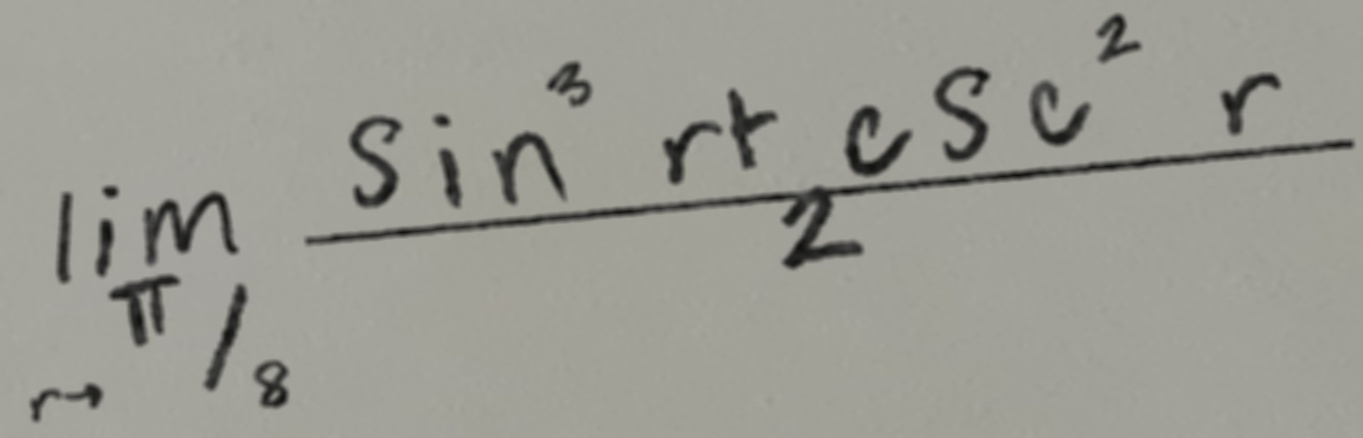 lim r→ π/8 sin³ r + csc² r / 2